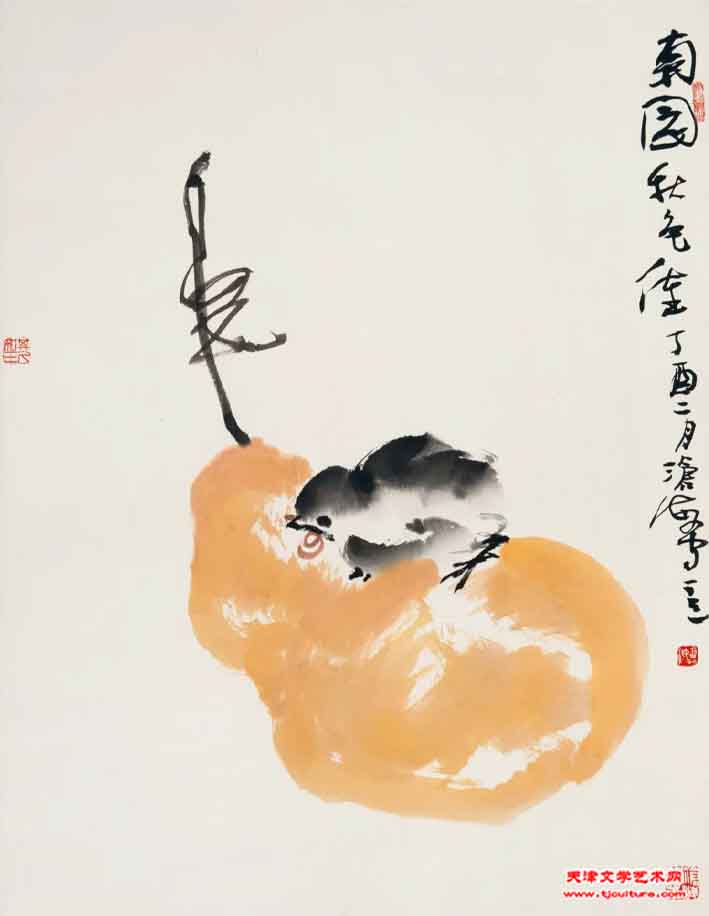 南園秋色佳 丁酉二月滄海
天津文学艺术网
www.tjculture.com